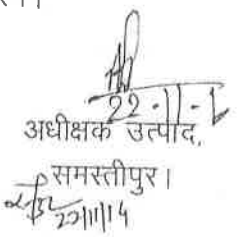 22-11-
अधीक्षक उत्पाद,
समस्तीपुर।
22/11/14